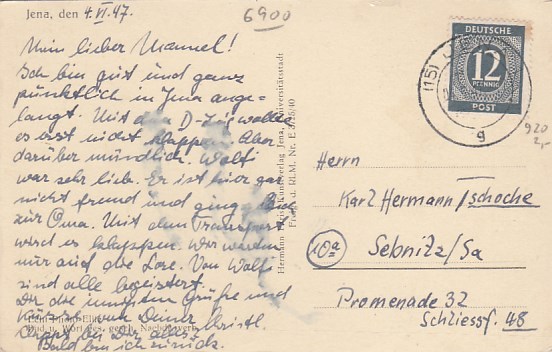 Jena, den 4.VI.47.
6900
Mein lieber Mannel!
Ich bin gut und ganz
pünktlich in Jena ange-
langt. Mit dem D-Zug wollte
es erst nicht klappen. Aber
darüber mündlich. Wolfi
war sehr lieb. Er ist hier gar
nicht fremd und ging gleich
zur Oma. Mit dem Transport
wird es klappen. Wir warten
nur auf die Lore. Von Wolfi
sind alle begeistert.
Dir die innigsten Grüße und
Küsse von Deiner Christl.
bei Dir alles?
Bald bin ich zurück.
Bild u. Wort ges. gesch. Nachdr. verb.
Hermann Jena, Universitätsstadt
RLM. Nr. E 3426/40
DEUTSCHE
12
PFENNIG
POST
(15)
g
920
2,-
Herrn
Karl Hermann Tschoche
10a
Sebnitz/Sa
Promenade 32
Schliessf. 48